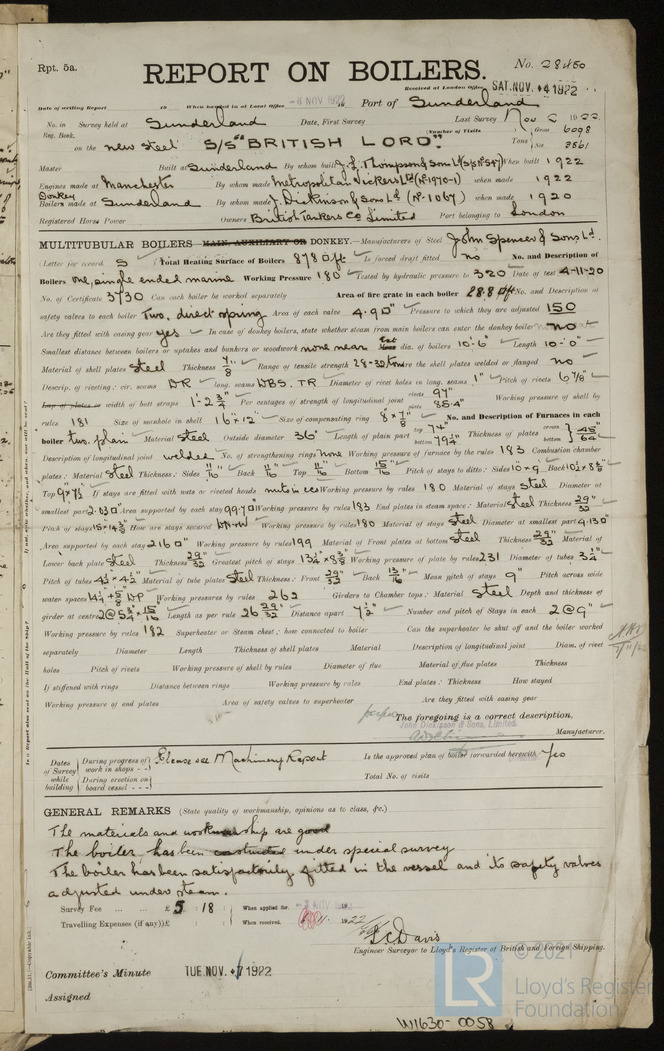 Rpt. 5a.
REPORT ON BOILERS.
No. 28450
Received at London Office SAT. NOV. 4 1922
Date of writing Report 19 When handed in at Local Office NOV 1922 Port of Sunderland
No. in Reg. Book. Survey held at Sunderland Date, First Survey Last Survey Nov 1922
(Number of Visits) Gross 6098
on the new steel S/S "BRITISH LORD" Tons Net 3561
Master Built at Sunderland By whom built J. L. Thompson & Sons Ld (S/S No 547) When built 1922
Engines made at Manchester By whom made Metropolitan Vickers Ld (No 1970-1) when made 1922
Donkey Boilers made at Sunderland By whom made J. Dickinson & Sons Ld (No 1067) when made 1920
Registered Horse Power Owners British Tankers Co Limited Port belonging to London
MULTITUBULAR BOILERS MAIN, AUXILIARY OR DONKEY.—Manufacturers of Steel John Spencer & Sons Ld.
(Letter for record S) Total Heating Surface of Boilers 878 □ft Is forced draft fitted no No. and Description of
Boilers one, single ended marine Working Pressure 180 Tested by hydraulic pressure to 320 Date of test 4-11-20
No. of Certificate 3730 Can each boiler be worked separately Area of fire grate in each boiler 28.8 □ft No. and Description of
safety valves to each boiler Two, direct spring Area of each valve 4.90" Pressure to which they are adjusted 150
Are they fitted with easing gear yes In case of donkey boilers, state whether steam from main boilers can enter the donkey boiler no
Smallest distance between boilers or uptakes and bunkers or woodwork none near Ext dia. of boilers 10'-6" Length 10'-0"
Material of shell plates steel Thickness 7/8 Range of tensile strength 28-32 tons Are the shell plates welded or flanged no
Descrip. of riveting: cir. seams DR long. seams DBS. TR Diameter of rivet holes in long. seams 1" Pitch of rivets 6 7/8"
Lap of plates or width of butt straps 1'-2 3/4" Per centages of strength of longitudinal joint rivets 97 plate 85.4 Working pressure of shell by
rules 181 Size of manhole in shell 16"x12" Size of compensating ring 8"x7/8" No. and Description of Furnaces in each
boiler two plain Material steel Outside diameter 36" Length of plain part top 74" bottom 79 1/4" Thickness of plates crown bottom 45/64"
Description of longitudinal joint welded No. of strengthening rings none Working pressure of furnace by the rules 183 Combustion chamber
plates: Material steel Thickness: Sides 11/16" Back 11/16" Top 11/16" Bottom 15/16" Pitch of stays to ditto: Sides 10x9 Back 10 1/2x8 5/8"
Top 9x7 1/2 If stays are fitted with nuts or riveted heads nuts Working pressure by rules 180 Material of stays steel Diameter at
smallest part 2.030 Area supported by each stay 99.70 Working pressure by rules 183 End plates in steam space: Material steel Thickness 29/32"
Pitch of stays 15"x14 3/8" How are stays secured Working pressure by rules 180 Material of stays steel Diameter at smallest part 4.130"
Area supported by each stay 216 □" Working pressure by rules 199 Material of Front plates at bottom steel Thickness 29/32" Material of
Lower back plate steel Thickness 29/32 Greatest pitch of stays 13 1/4x8 5/8 Working pressure of plate by rules 231 Diameter of tubes 3 1/4"
Pitch of tubes 4 1/2x4 1/2 Material of tube plates steel Thickness: Front 29/32" Back 13/16" Mean pitch of stays 9" Pitch across wide
water spaces 14 1/4 Working pressures by rules 262 Girders to Chamber tops: Material steel Depth and thickness of
girder at centre 2@5 3/4x15/16 Length as per rule 26 29/32 Distance apart 7 1/2" Number and pitch of Stays in each 2@9"
Working pressure by rules 182 Superheater or Steam chest; how connected to boiler Can the superheater be shut off and the boiler worked
separately Diameter Length Thickness of shell plates Material Description of longitudinal joint Diam. of rivet
holes Pitch of rivets Working pressure of shell by rules Diameter of flue Material of flue plates Thickness
If stiffened with rings Distance between rings Working pressure by rules End plates: Thickness How stayed
Working pressure of end plates Area of safety valves to superheater Are they fitted with easing gear
The foregoing is a correct description,
John Dickinson & Sons, Limited.
Manufacturer.
Dates of Survey while building
During progress of work in shops - -
During erection on board vessel - - -
Please see Machinery Report
Is the approved plan of boiler forwarded herewith Yes
Total No. of visits
GENERAL REMARKS (State quality of workmanship, opinions as to class, &c.)
The materials and workmanship are good
The boiler has been constructed under special survey
The boiler has been satisfactorily fitted in the vessel and its safety valves
adjusted under steam.
Survey Fee ... ... £ 5 : 18 : When applied for. NOV 19
Travelling Expenses (if any) £ : : When received. 1922
L C Davis
Engineer Surveyor to Lloyd's Register of British and Foreign Shipping.
Committee's Minute TUE. NOV. 7 1922
Assigned
© 2021
Lloyd's Register
Foundation
LR
W1630-0058